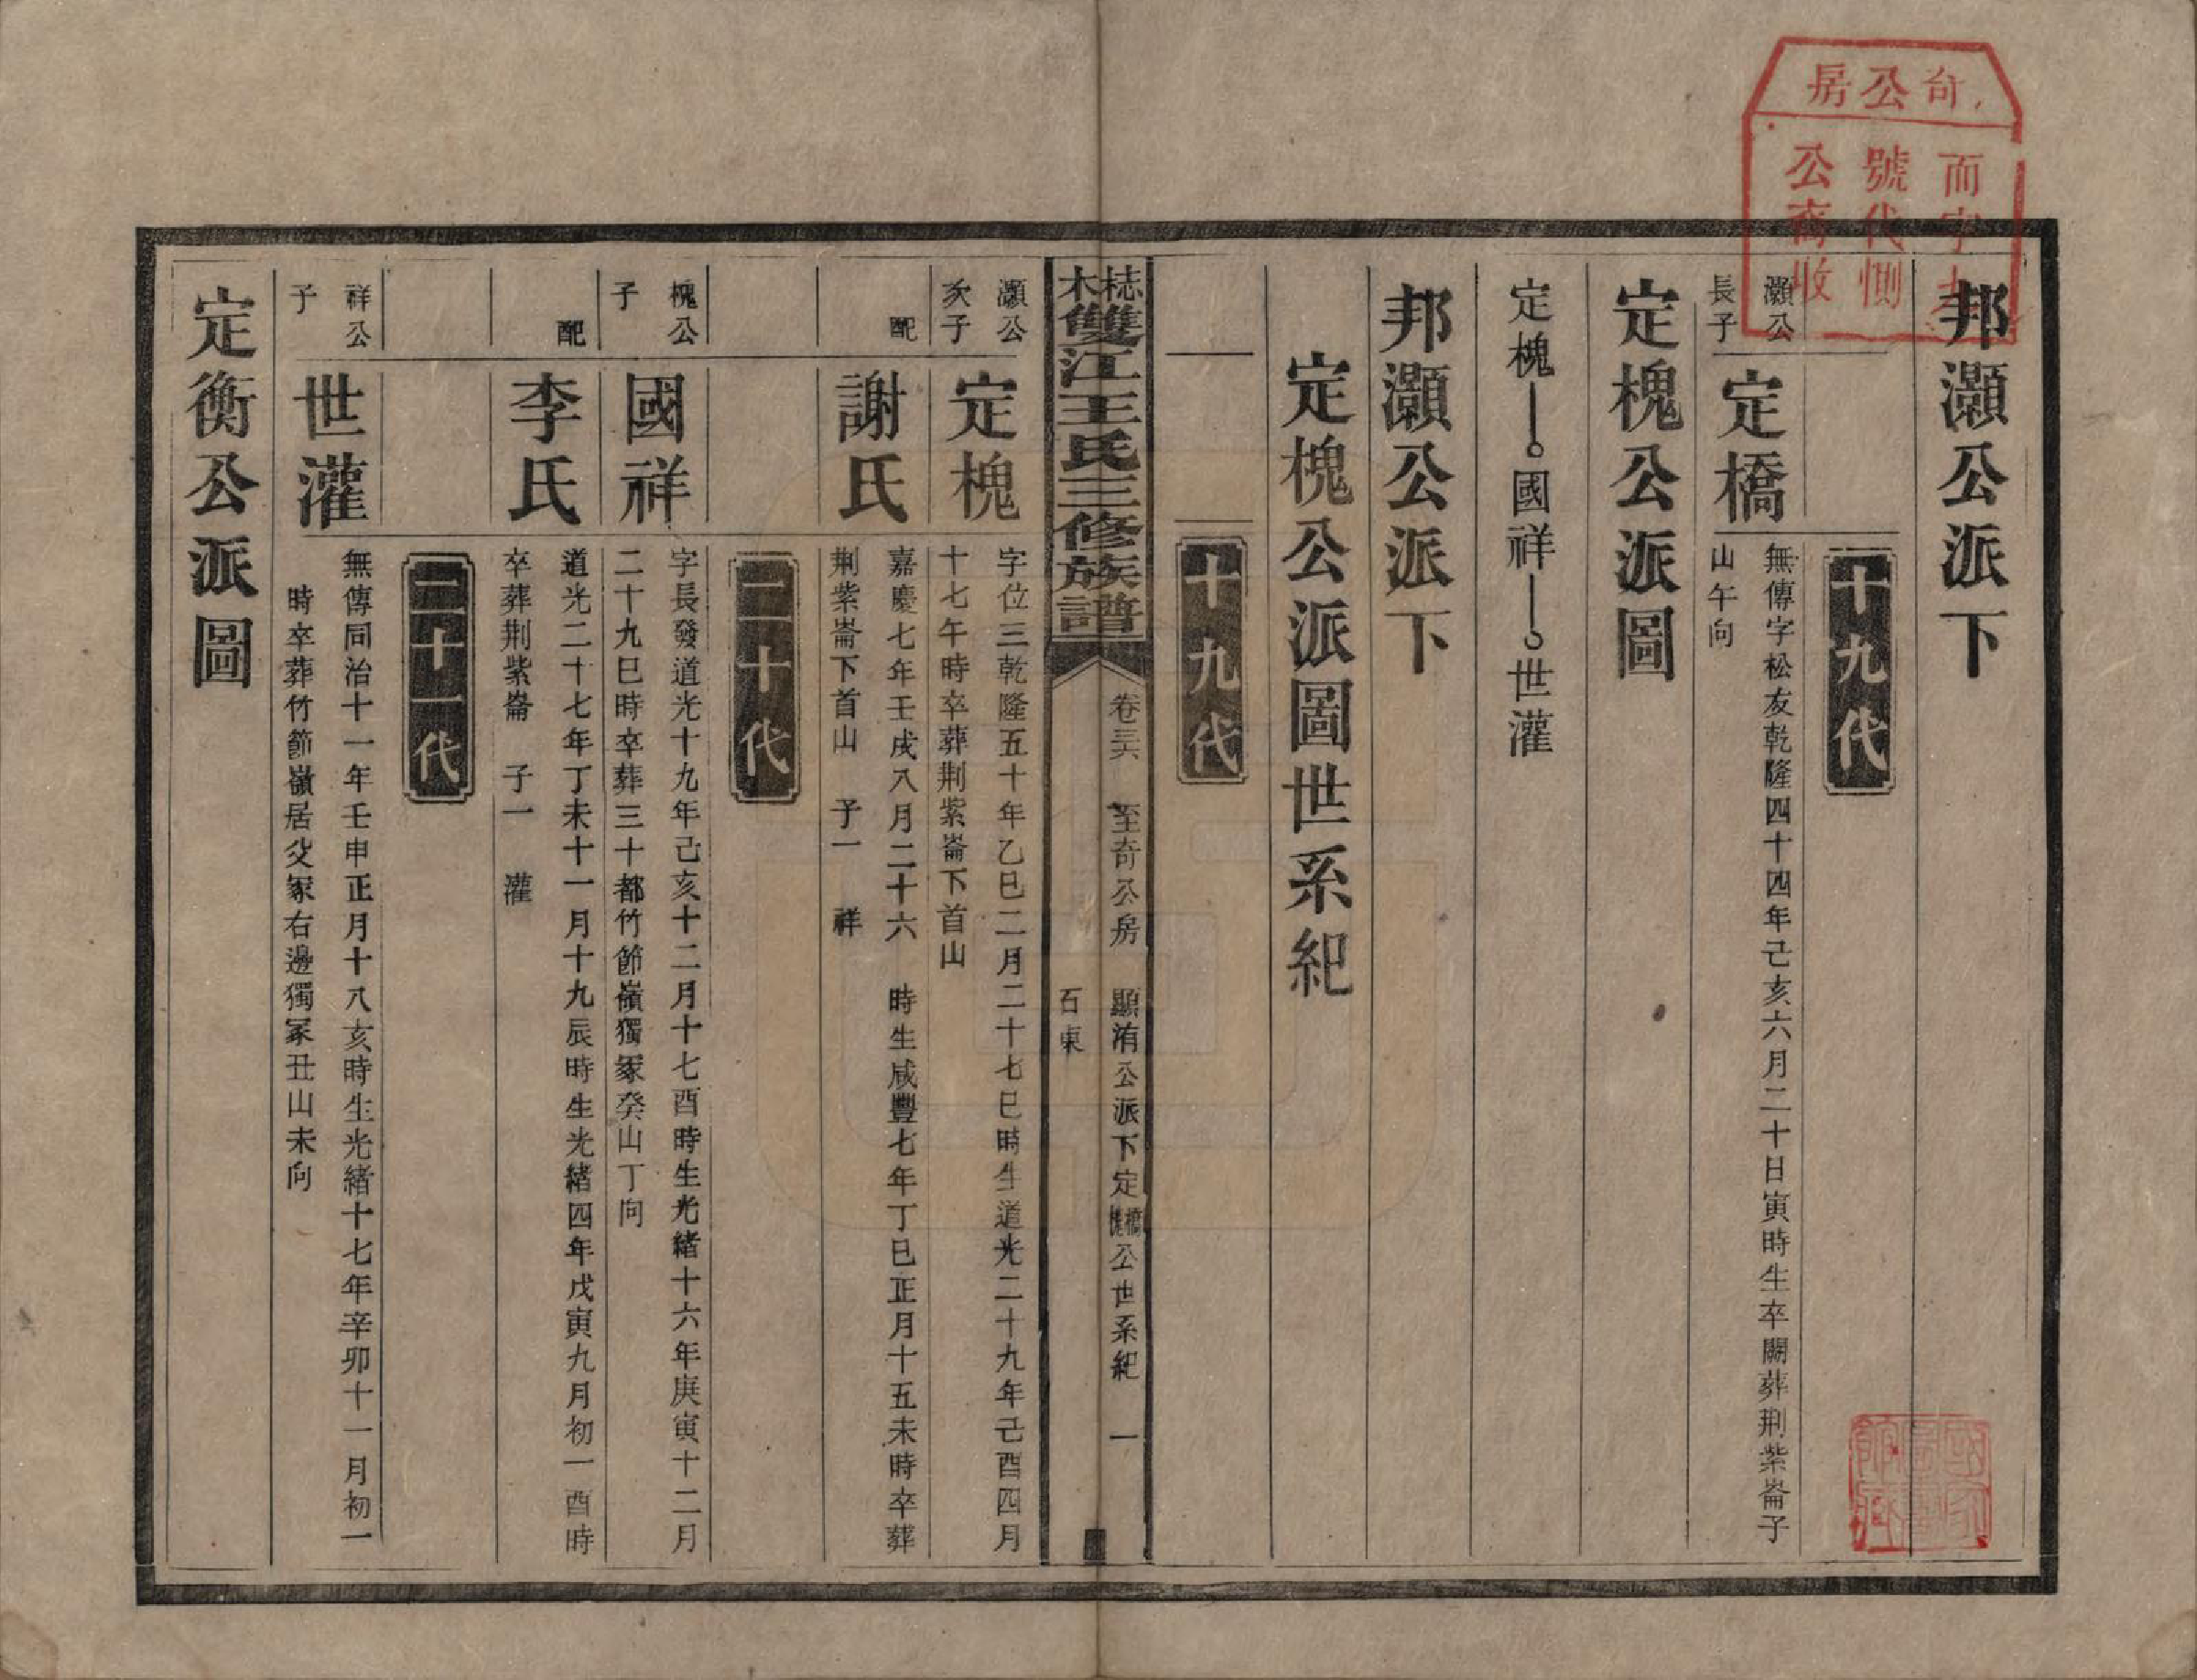 公房
號代
公裔收
邦灝公派下
十九代
灝公長子
定橋
無傳字松友乾隆四十四年己亥六月二十日寅時生卒闕葬荆紫崙子
山午向
定槐公派圖
定槐 國祥 世灌
邦灝公派下
定槐公派圖世系紀
十九代
梽木雙江王氏三修族譜
卷三六 至奇公房 顯洧公派下定橋槐公世系紀 一
石東
灝公次子
定槐
字位三乾隆五十年乙巳二月二十七巳時生道光二十九年己酉四月
十七午時卒葬荆紫崙下首山
配
謝氏
嘉慶七年壬戌八月二十六 時生咸豐七年丁巳正月十五未時卒葬
荆紫崙下首山 子一 祥
二十代
槐公子
國祥
字長發道光十九年己亥十二月十七酉時生光緒十六年庚寅十二月
二十九巳時卒葬三十都竹節嶺獨冢癸山丁向
配
李氏
道光二十七年丁未十一月十九辰時生光緒四年戊寅九月初一酉時
卒葬荆紫崙 子一 灌
二十一代
祥公子
世灌
無傳同治十一年壬申正月十八亥時生光緒十七年辛卯十一月初一
時卒葬竹節嶺居父冢右邊獨冢丑山未向
定衡公派圖